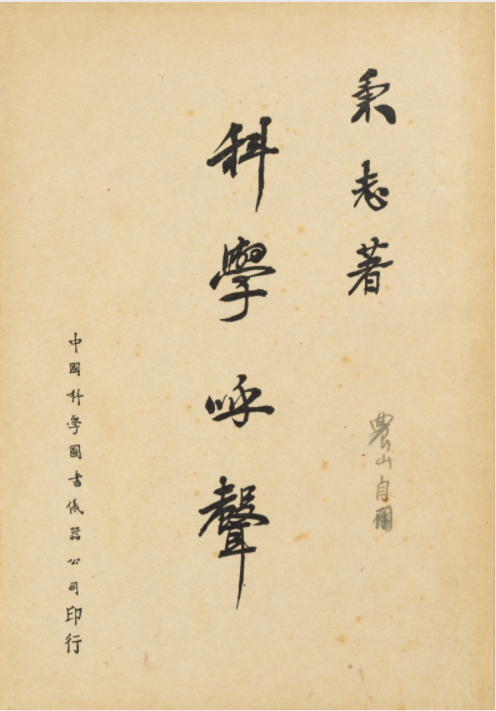 秉志著
農山自用
科學呼聲
中國科學圖書儀器公司印行